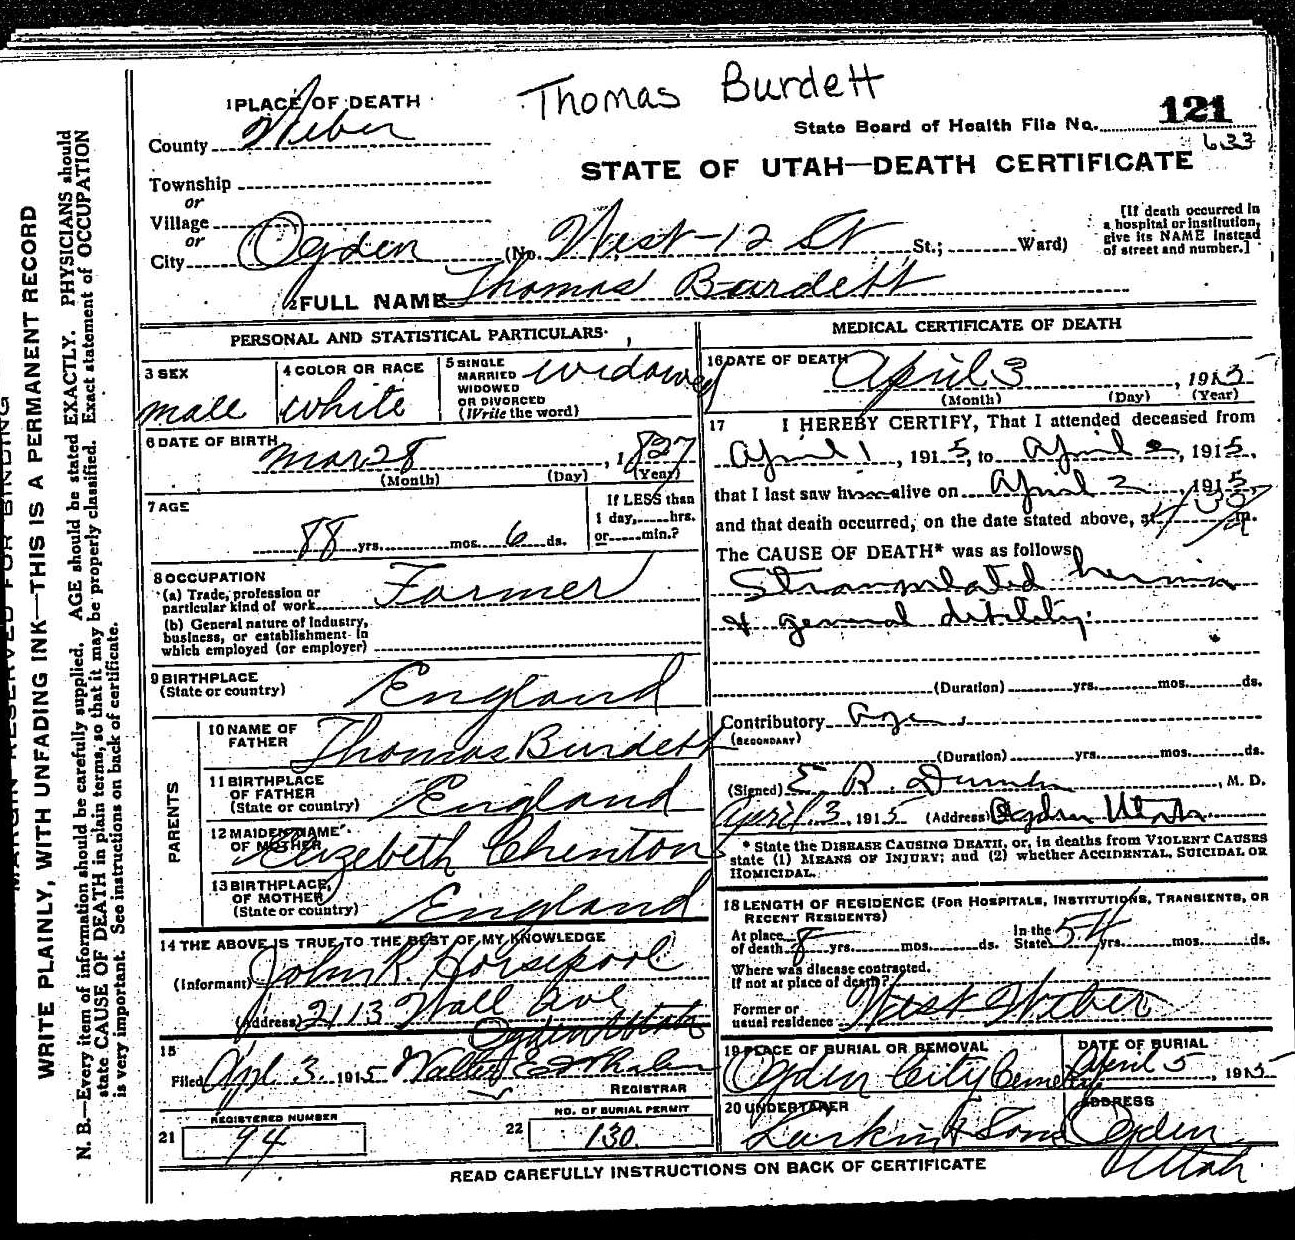 Thomas Burdett
1 PLACE OF DEATH
121
State Board of Health File No.
633
County Weber
STATE OF UTAH—DEATH CERTIFICATE
Township
or
Village
or
City Ogden (No. West-12 St St.; Ward)
[If death occurred in
a hospital or institution,
give its NAME instead
of street and number.]
2 FULL NAME Thomas Burdett
PERSONAL AND STATISTICAL PARTICULARS
3 SEX
male
4 COLOR OR RACE
white
5 SINGLE
MARRIED
WIDOWED
OR DIVORCED
(Write the word)
widowed
6 DATE OF BIRTH
Mar 28, 1827
(Month) (Day) (Year)
7 AGE
88 yrs. mos. 6 ds.
If LESS than
1 day, hrs.
or min.?
8 OCCUPATION
(a) Trade, profession or
particular kind of work
Farmer
(b) General nature of Industry,
business, or establishment in
which employed (or employer)
9 BIRTHPLACE
(State or country)
England
PARENTS
10 NAME OF
FATHER
Thomas Burdett
11 BIRTHPLACE
OF FATHER
(State or country)
England
12 MAIDEN NAME
OF MOTHER
Elizebeth Chenton
13 BIRTHPLACE,
OF MOTHER
(State or country)
England
14 THE ABOVE IS TRUE TO THE BEST OF MY KNOWLEDGE
(Informant) John R. Horsepool
(Address) 2113 Wall Ave
Ogden Utah
15
Filed Apl. 3. 1915 Walter E. Whalen
REGISTRAR
REGISTERED NUMBER
21 94
NO. OF BURIAL PERMIT
22 130
MEDICAL CERTIFICATE OF DEATH
16 DATE OF DEATH
April 3, 1915
(Month) (Day) (Year)
17 I HEREBY CERTIFY, That I attended deceased from
April 1, 1915, to April 2, 1915,
that I last saw h alive on April 2, 1915,
and that death occurred, on the date stated above, at m.
The CAUSE OF DEATH* was as follows
Strangulated hernia
& general debility.
(Duration) yrs. mos. ds.
Contributory Age.
(SECONDARY)
(Duration) yrs. mos. ds.
(Signed) E. R. , M. D.
April 3, 1915 (Address) Ogden Utah
* State the DISEASE CAUSING DEATH, or, in deaths from VIOLENT CAUSES
state (1) MEANS OF INJURY; and (2) whether ACCIDENTAL, SUICIDAL OR
HOMICIDAL.
18 LENGTH OF RESIDENCE (FOR HOSPITALS, INSTITUTIONS, TRANSIENTS, OR
RECENT RESIDENTS)
At place
of death 8 yrs. mos. ds.
In the
State 54 yrs. mos. ds.
Where was disease contracted.
If not at place of death?
Former or
usual residence West Weber
19 PLACE OF BURIAL OR REMOVAL
Ogden City Cemetery
DATE OF BURIAL
April 5, 1915
20 UNDERTAKER
Larkin & Sons
ADDRESS
Ogden
Utah
READ CAREFULLY INSTRUCTIONS ON BACK OF CERTIFICATE
MARGIN RESERVED FOR BINDING
WRITE PLAINLY, WITH UNFADING INK—THIS IS A PERMANENT RECORD
N. B.—Every item of information should be carefully supplied. AGE should be stated EXACTLY. PHYSICIANS should
state CAUSE OF DEATH in plain terms, so that it may be properly classified. Exact statement of OCCUPATION
is very important. See instructions on back of certificate.